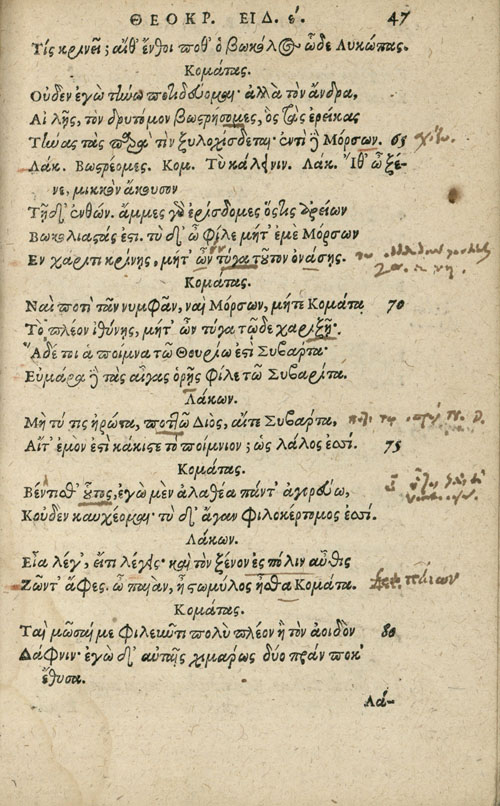 ΘΕΟΚΡ. ΕΙΔ. έ. 47
Τίς κρινεῖ; αἴθ' ἔνθοι ποθ' ὁ βωκόλος ὧδε Λυκώπας.
Κομάτας.
Οὐδὲν ἐγὼ τήνω ποτιδεύομαι· ἀλλὰ τὸν ἄνδρα,
Αἰ λῇς, τὸν δρυτόμον βωστρήσομες, ὃς τὰς ἐρείκας
Τήνας τὰς παρὰ τὶν ξυλοχίσδεται· ἐντὶ ἢ Μόρσων. 65
Λάκ. Βωστρέομες. Κομ. Τὺ κάλῃ νιν. Λάκ. Ἴθ' ὦ ξέ-
νε, μικκὸν ἄκουσον
Τῇδ' ἐνθών. ἄμμες γὰρ ἐρίσδομες ὅστις ἀρείων
Βωκολιαστάς ἐστι. τὺ δ' ὦ φίλε μήτ' ἐμὲ Μόρσων
Εν χάριτι κρίνῃς, μήτ' ὦν τύγα τοῦτον ὀνάσῃς.
Κομάτας.
Ναὶ ποτὶ τᾶν νυμφᾶν, ναὶ Μόρσων, μήτε Κομάτα 70
Τὸ πλέον ἰθύνῃς, μήτ' ὦν τύγα τῷδε χαρίξῃ.
Ἅδέ τοι ἁ ποίμνα τῶ Θουρίω ἐστὶ Συβάρτα·
Εὐμάρα ἢ τὰς αἶγας ὁρῇς φίλε τῶ Συβαρίτα.
Λάκων.
Μὴ τύ τις ἠρώτα, ποττῶ Διὸς, αἴτε Συβάρτα,
Αἴτ' ἐμὸν ἐστὶ κάκιστε τὸ ποίμνιον; ὡς λάλος ἐσσί. 75
Κομάτας.
Βέντισθ' οὗτος, ἐγὼ μὲν ἀλαθέα πάντ' ἀγορεύω,
Κοὐδὲν καυχέομαι· τὺ δ' ἄγαν φιλοκέρτομος ἐσσί.
Λάκων.
Εἶα λέγ', εἴ τι λέγεις· καὶ τὸν ξένον ἐς πόλιν αὖθις
Ζῶντ' ἄφες. ὦ παιὰν, ἦ στωμύλος ἦσθα Κομάτα.
Κομάτας.
Ταὶ μῶσαί με φιλεῦντι πολὺ πλέον ἢ τὸν ἀοιδὸν 80
Δάφνιν· ἐγὼ δ' αὐταῖς χιμάρως δύο πρᾶν ποκ'
ἔθυσα.
Λά-